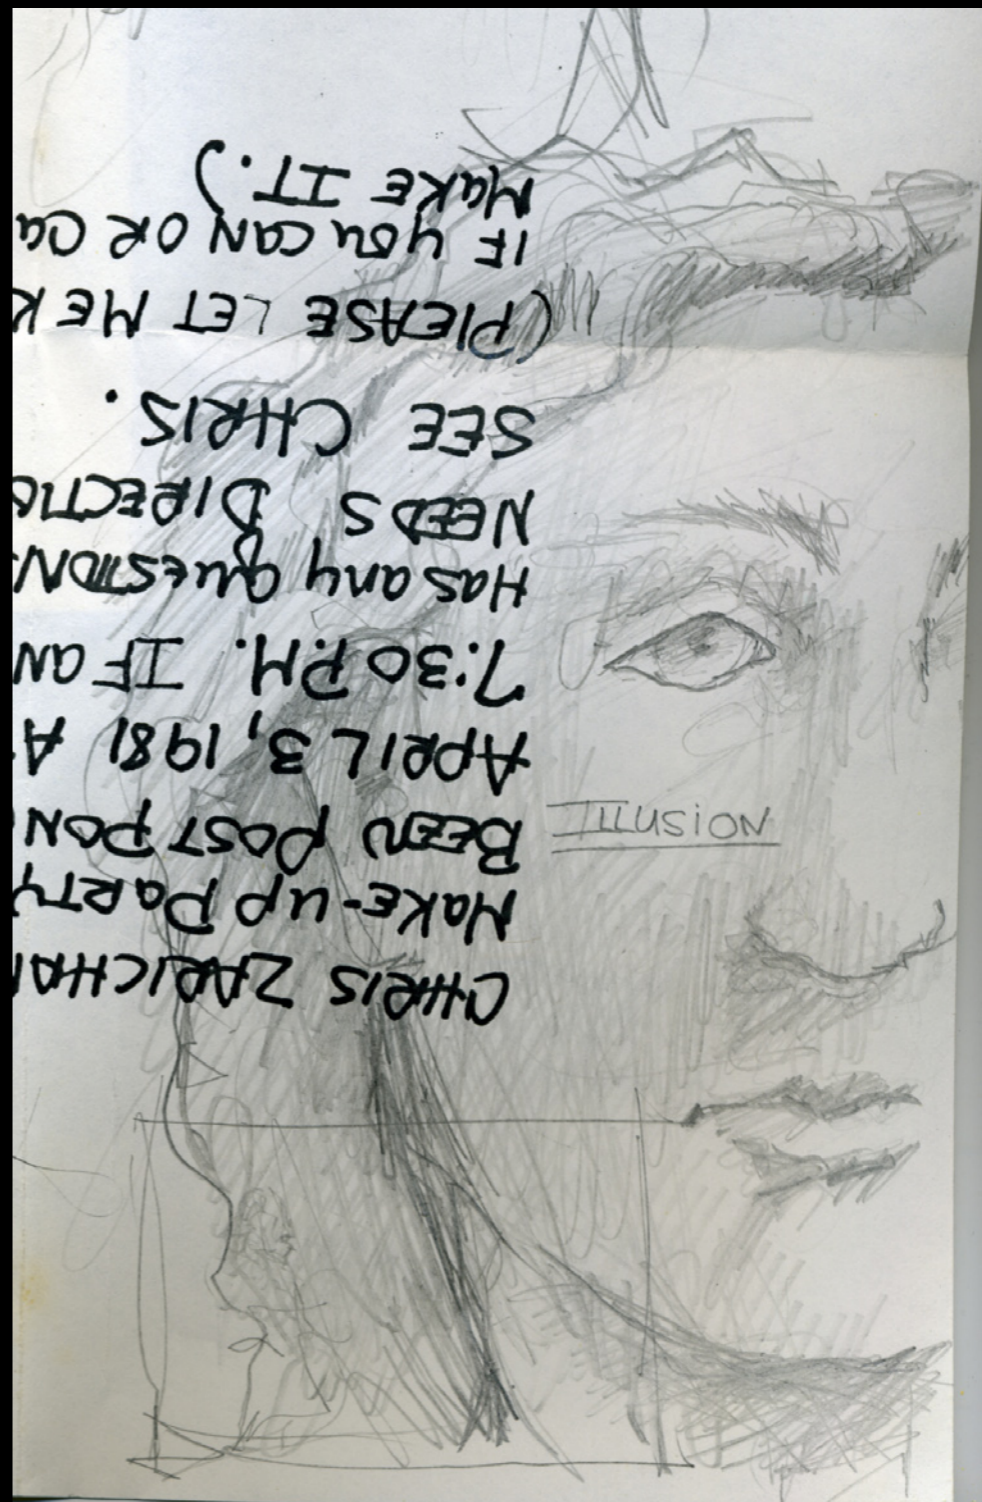 CHRIS ZARICHA
MAKE-UP PARTY
BEEN POST PON
APRIL 3, 1981 A
7:30 P.M. IF AN
HAS ANY QUESTIONS
NEEDS DIRECTIO
SEE CHRIS.
(PLEASE LET ME K
IF YOU CAN OR CA
MAKE IT.)
ILLUSION